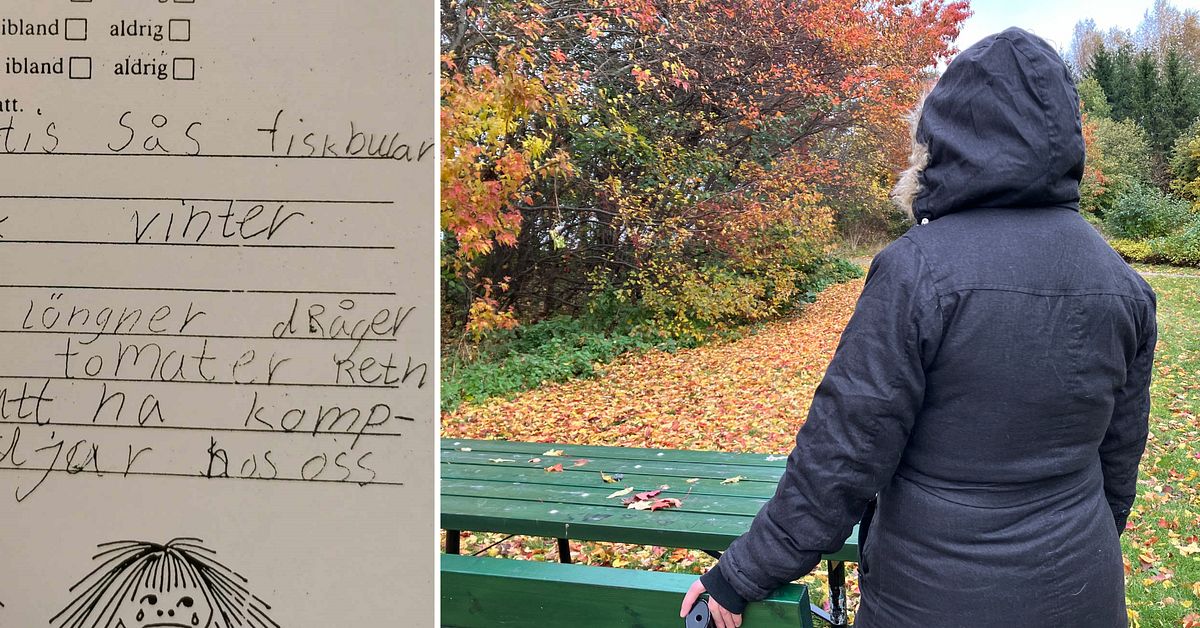 ibland aldrig
ibland aldrig
att.
tis sås fiskbular
vinter
löngner dRåger
tomater Retn
att ha komp-
djar hos oss